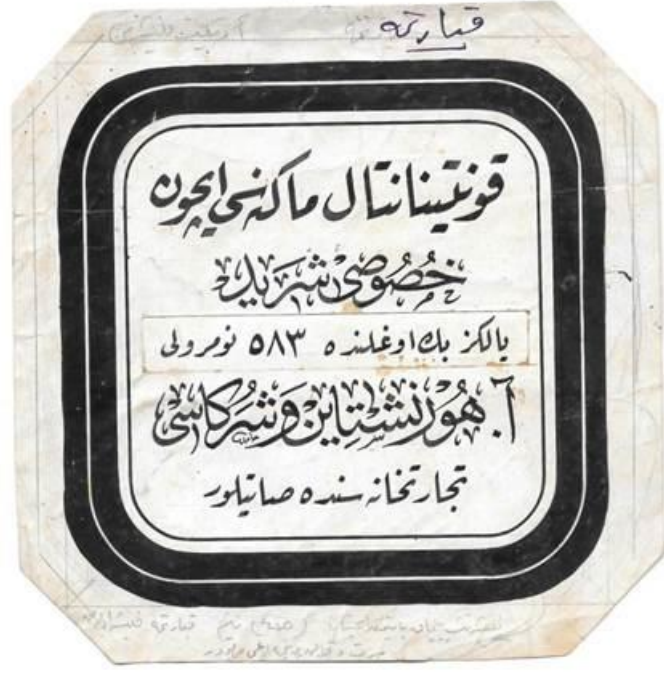 قبارتمه
قونتينانتال ماكنه‌سى ايچون
خُصُوصِى شَرِيد
يالكز بك اوغلنده ٥٨٣ نومرولى
آ. هُورْنشْتَاين وَشُرَكَاسِى
تجارتخانه سنده صاتيلور